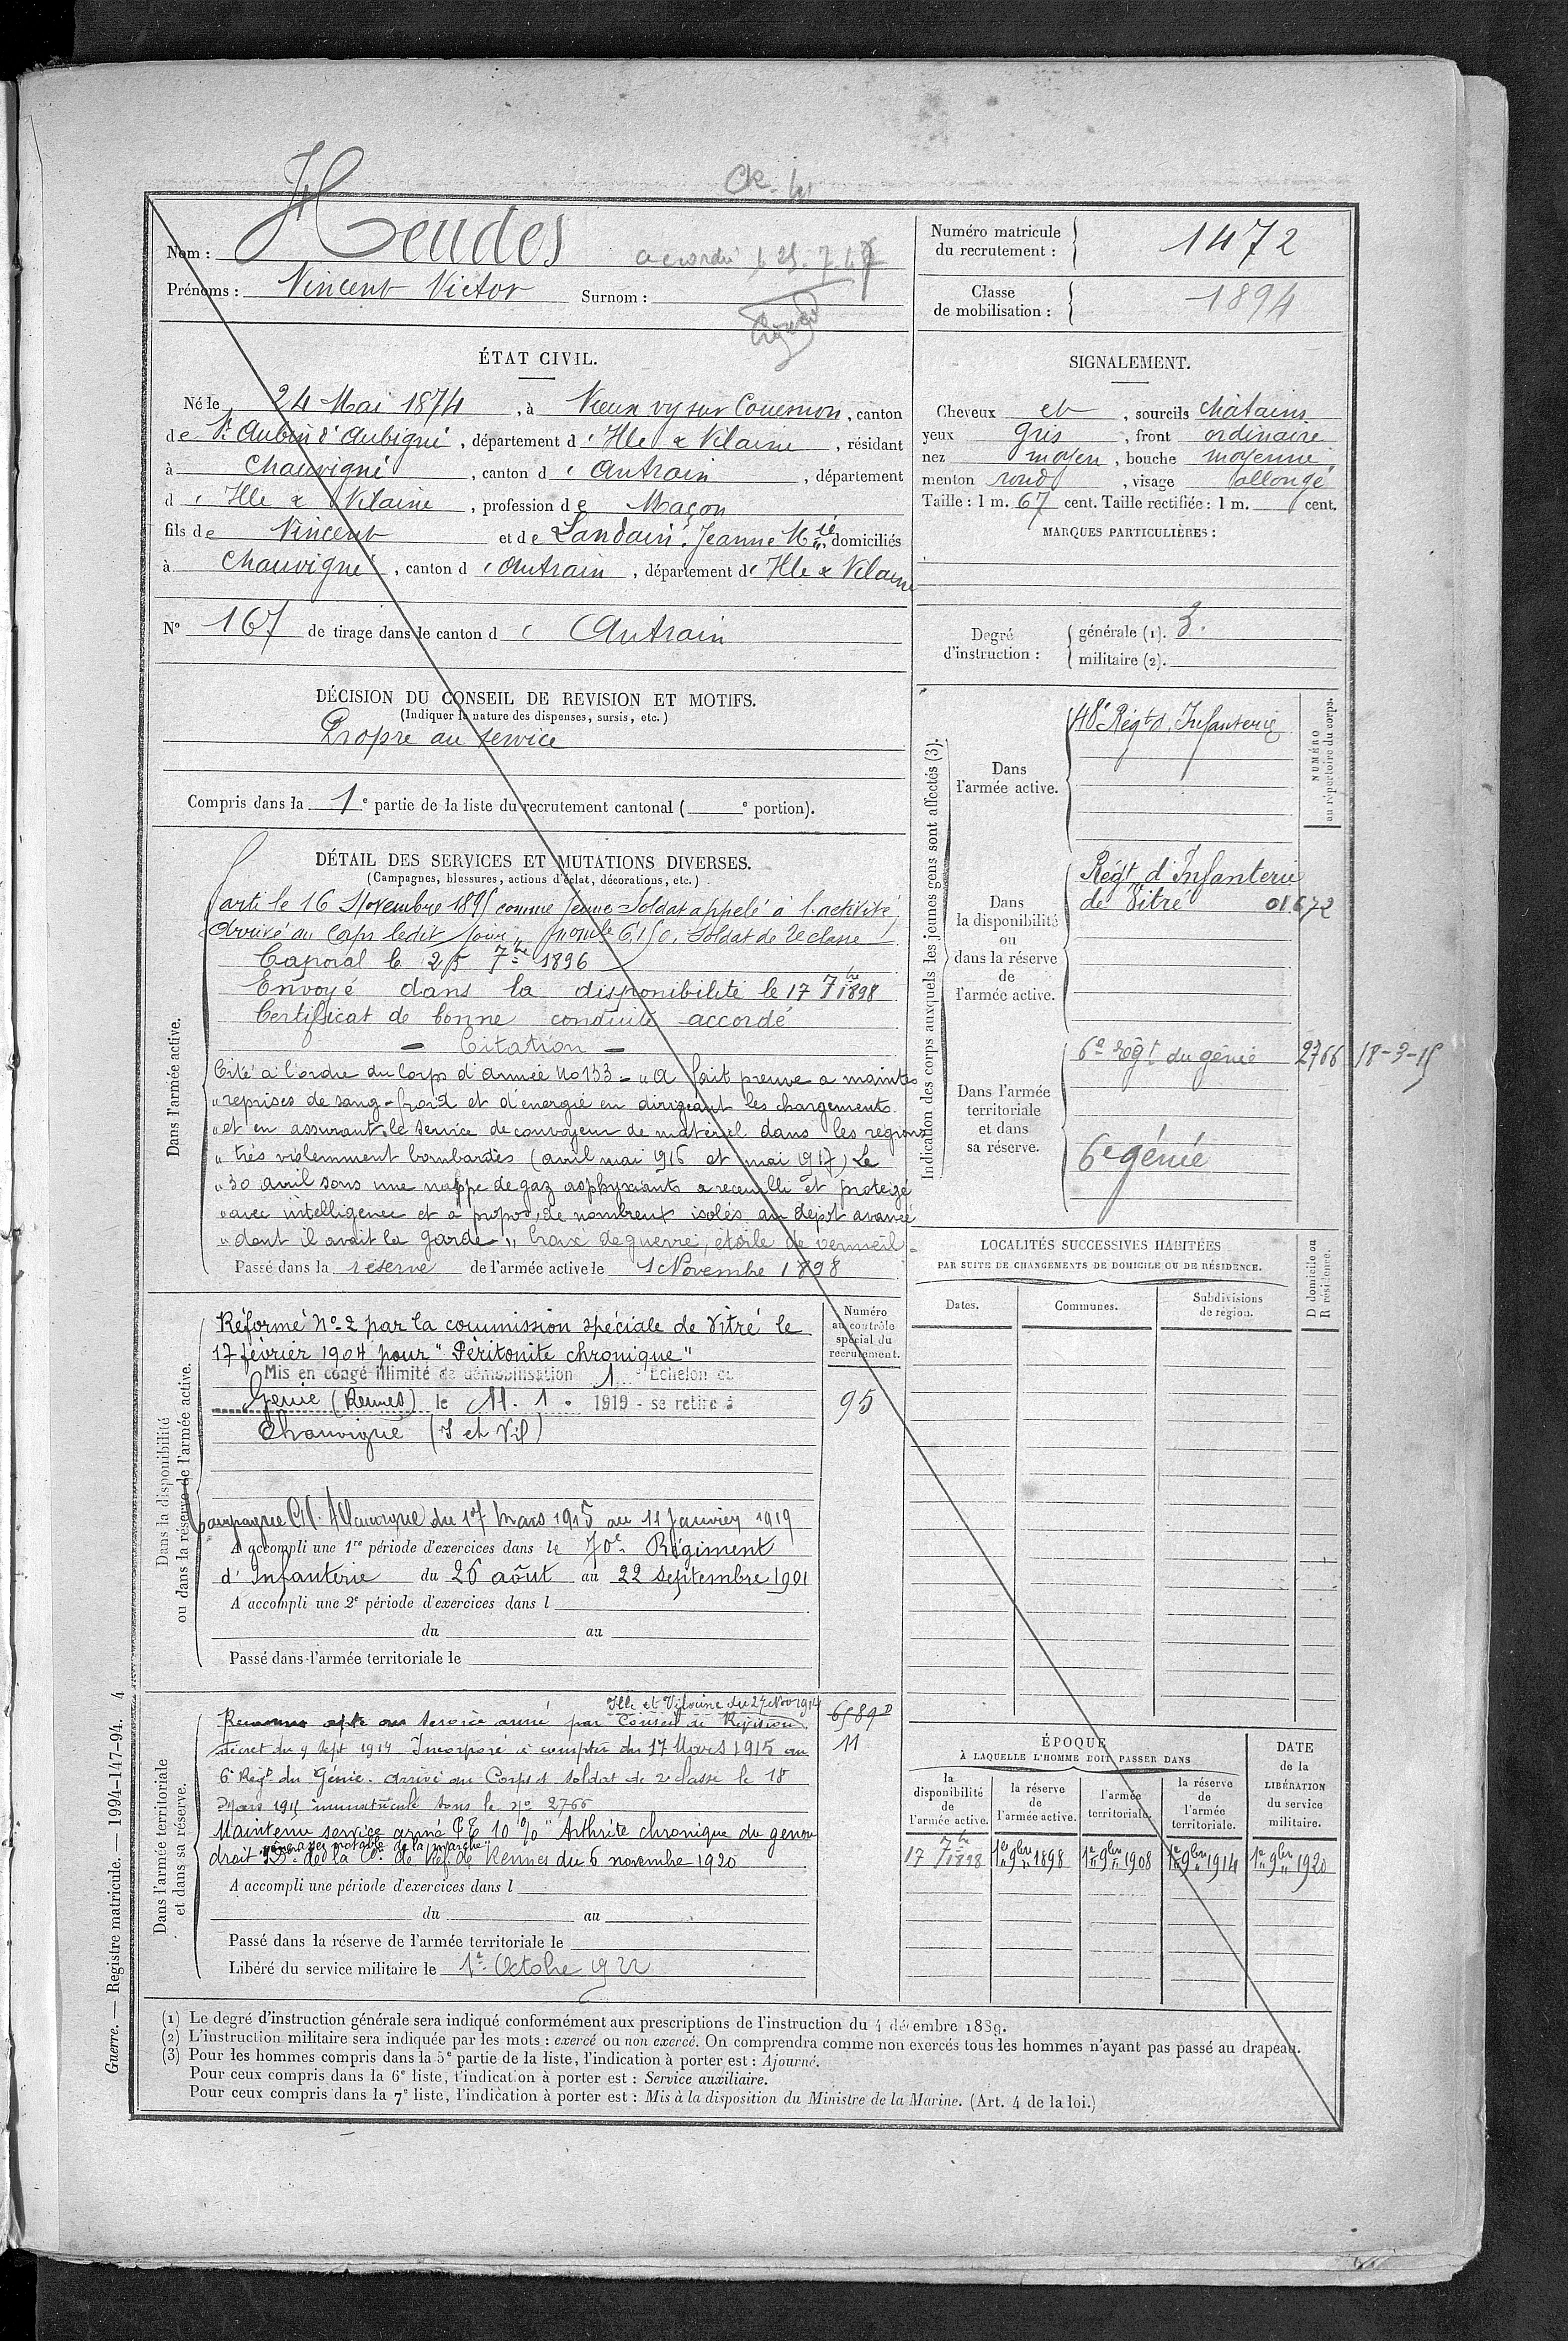 Ce.
Nom : Heudes
accordé le 25.7.47
Prénoms : Vincent Victor Surnom :
Numéro matricule du recrutement : 1472
Classe de mobilisation : 1894
ÉTAT CIVIL.
Né le 24 Mai 1874, à Vieux vy sur Couesnon, canton
de St Aubin d'Aubigné, département d'Ille & Vilaine, résidant
à Chauvigné, canton d'Antrain, département
d'Ille & Vilaine, profession de Maçon
fils de Vincent et de Landais, Jeanne Mie domiciliés
à Chauvigné, canton d'Antrain, département d'Ille & Vilaine
N° 167 de tirage dans le canton d'Antrain
SIGNALEMENT.
Cheveux et, sourcils châtains
yeux gris, front ordinaire
nez moyen, bouche moyenne
menton rond, visage allongé
Taille : 1 m. 67 cent. Taille rectifiée : 1 m. cent.
MARQUES PARTICULIÈRES :
Degré d'instruction :
générale (1). 3.
militaire (2).
DÉCISION DU CONSEIL DE REVISION ET MOTIFS.
(Indiquer la nature des dispenses, sursis, etc.)
Propre au service
Compris dans la 1e partie de la liste du recrutement cantonal ( e portion).
DÉTAIL DES SERVICES ET MUTATIONS DIVERSES.
(Campagnes, blessures, actions d'éclat, décorations, etc.)
Dans l'armée active.
Parti le 16 Novembre 1895 comme Jeune Soldat appelé à l'activité
Arrivé au Corps ledit jour, Soldat de 2e classe
Caporal le 25 7bre 1896
Envoyé dans la disponibilité le 17 7bre 1898
Certificat de bonne conduite accordé
- Citation -
Cité à l'ordre du Corps d'armée No 133 - "A fait preuve a maintes
"reprises de sang-froid et d'énergie en dirigeant les chargements
"et en assurant le service de convoyeur de matériel dans les régions
"très violemment bombardés (avril mai 1916 et mai 1917) Le
"30 avril sous une nappe de gaz asphyxiants a recueilli et protégé
"avec intelligence et à propos, de nombreux isolés au dépôt avancé
"dont il avait la garde" Croix de guerre, étoile de vermeil.
Passé dans la réserve de l'armée active le 1 Novembre 1898
Indication des corps auxquels les jeunes gens sont affectés (3).
NUMÉRO au répertoire du corps.
Dans l'armée active.
48e Régt d'Infanterie
Dans la disponibilité ou dans la réserve de l'armée active.
Régt d'Infanterie
de Vitré 01672
Dans l'armée territoriale et dans sa réserve.
6e régt du génie 2766 18-3-15
6e génie
LOCALITÉS SUCCESSIVES HABITÉES
PAR SUITE DE CHANGEMENTS DE DOMICILE OU DE RÉSIDENCE.
Dates. Communes. Subdivisions de région. D domicile ou R résidence.
Dans la disponibilité ou dans la réserve de l'armée active.
Numéro au contrôle spécial du recrutement.
Réformé No 2 par la commission spéciale de Vitré le
17 février 1904 pour "Péritonite chronique"
Mis en congé illimité de démobilisation 1 Echelon du
Génie (Rennes) le 11. 1. 1919 - se retire à
Chauvigné (I et Vil)
95
Campagne C/ Allemagne du 17 Mars 1915 au 11 Janvier 1919
A accompli une 1re période d'exercices dans le 70e Régiment
d'Infanterie du 26 août au 22 septembre 1901
A accompli une 2e période d'exercices dans l
du au
Passé dans l'armée territoriale le
Dans l'armée territoriale et dans sa réserve.
Ille et Vilaine du 27 Nov 1914
Reconnu apte au Service armé par Conseil de Révision
décret du 9 Sept 1914. Incorporé à compter du 17 Mars 1915 au
11
6e Régt du Génie. Arrivé au Corps et soldat de 2e classe le 18
Mars 1915 immatriculé sous le No 2766
Maintenu service armé 10% "Arthrite chronique du genou
droit de la marche"
de la Con de Réf. de Rennes du 6 novembre 1920
A accompli une période d'exercices dans l
du au
Passé dans la réserve de l'armée territoriale le
Libéré du service militaire le 1er Octobre 1922
ÉPOQUE
À LAQUELLE L'HOMME DOIT PASSER DANS
DATE de la LIBÉRATION du service militaire.
la disponibilité de l'armée active. la réserve de l'armée active. l'armée territoriale. la réserve de l'armée territoriale.
17 7bre 1898 1er 9bre 1898 1er 9bre 1908 1er 9bre 1914 1er 9bre 1920
(1) Le degré d'instruction générale sera indiqué conformément aux prescriptions de l'instruction du 4 décembre 1889.
(2) L'instruction militaire sera indiquée par les mots : exercé ou non exercé. On comprendra comme non exercés tous les hommes n'ayant pas passé au drapeau.
(3) Pour les hommes compris dans la 5e partie de la liste, l'indication à porter est : Ajourné.
Pour ceux compris dans la 6e liste, l'indication à porter est : Service auxiliaire.
Pour ceux compris dans la 7e liste, l'indication à porter est : Mis à la disposition du Ministre de la Marine. (Art. 4 de la loi.)
Guerre. — Registre matricule. — 1994-147-94. 4